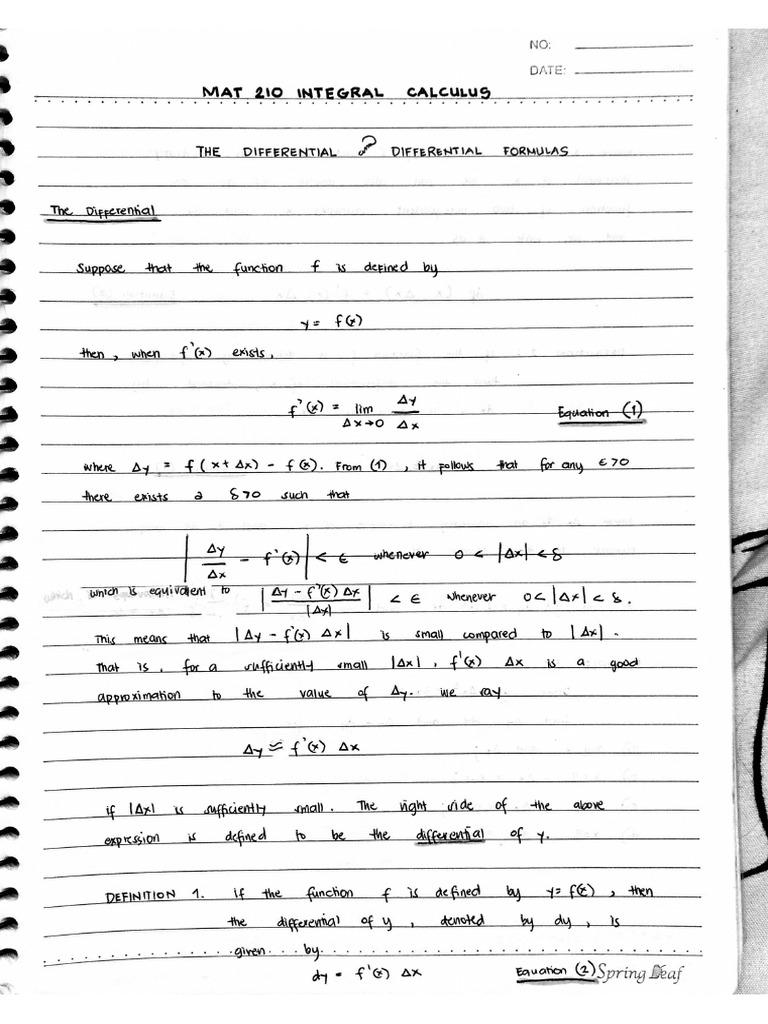 NO:
DATE:
MAT 210 INTEGRAL CALCULUS
THE DIFFERENTIAL & DIFFERENTIAL FORMULAS
The Differential
Suppose that the function f is defined by
y = f(x)
then, when f'(x) exists,
f'(x) = lim Δx→0 Δy/Δx Equation (1)
where Δy = f(x+Δx) - f(x). From (1), it follows that for any ε>0
there exists a δ>0 such that
|Δy/Δx - f'(x)| < ε whenever 0 < |Δx| < δ
which is equivalent to |Δy - f'(x) Δx|/|Δx| < ε whenever 0 < |Δx| < δ.
This means that |Δy - f'(x) Δx| is small compared to |Δx|.
That is, for a sufficiently small |Δx|, f'(x) Δx is a good
approximation to the value of Δy. we say
Δy ≈ f'(x) Δx
if |Δx| is sufficiently small. The right side of the above
expression is defined to be the differential of y.
DEFINITION 1. if the function f is defined by y = f(x), then
the differential of y, denoted by dy, is
given by
dy = f'(x) Δx Equation (2) Spring Leaf